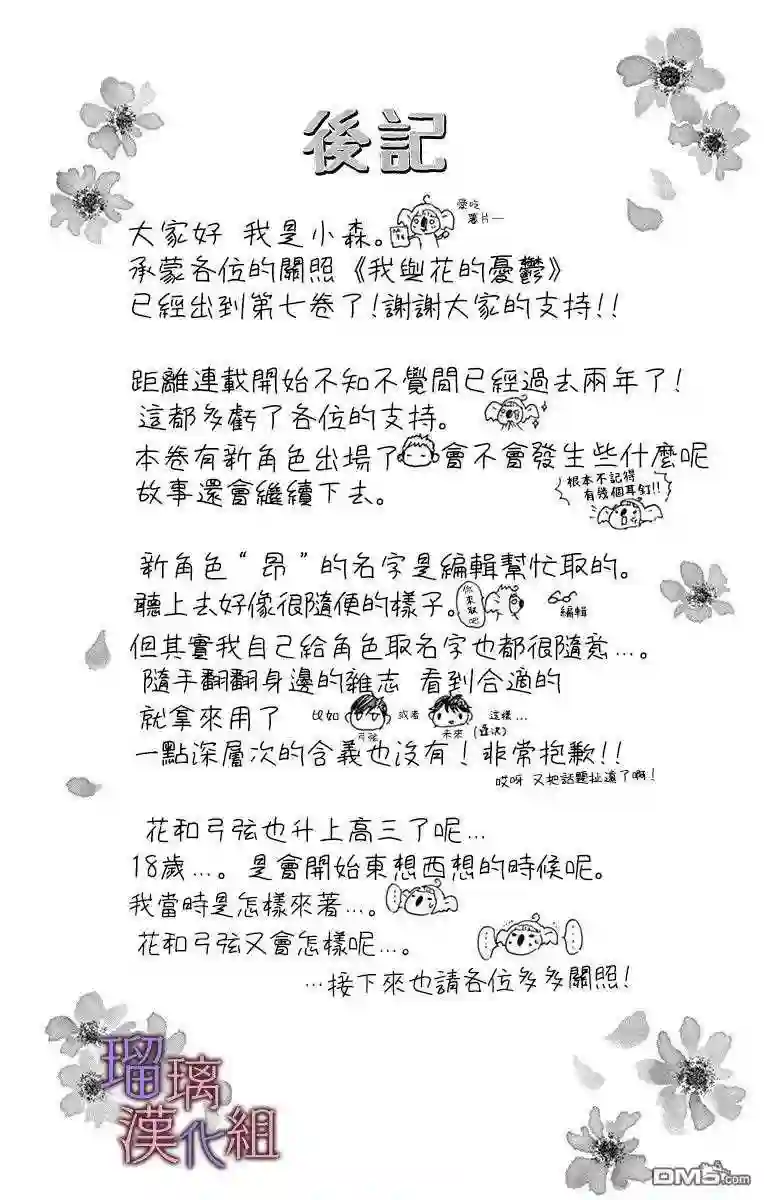 後記
大家好 我是小森。
愛吃
薯片—
承蒙各位的關照《我與花的憂鬱》
已經出到第七卷了!謝謝大家的支持!!
距離連載開始不知不覺間已經過去兩年了!
這都多虧了各位的支持。
本卷有新角色出場了 會不會發生些什麼呢
故事還會繼續下去。
根本不記得
有幾個耳釘!!
新角色“昂”的名字是編輯幫忙取的。
聽上去好像很隨便的樣子。
你來取吧
編輯
但其實我自己給角色取名字也都很隨意...。
隨手翻翻身邊的雜志 看到合適的
就拿來用了 比如 或者 這樣...
弓弦 未來 (遙決)
一點深層次的含義也沒有!非常抱歉!!
哎呀 又把話題扯遠了啊!
花和弓弦也升上高三了呢...
18歲...。是會開始東想西想的時候呢。
我當時是怎樣來著...。
花和弓弦又會怎樣呢...。
...接下來也請各位多多關照!
瑠璃
漢化組
DM5.com